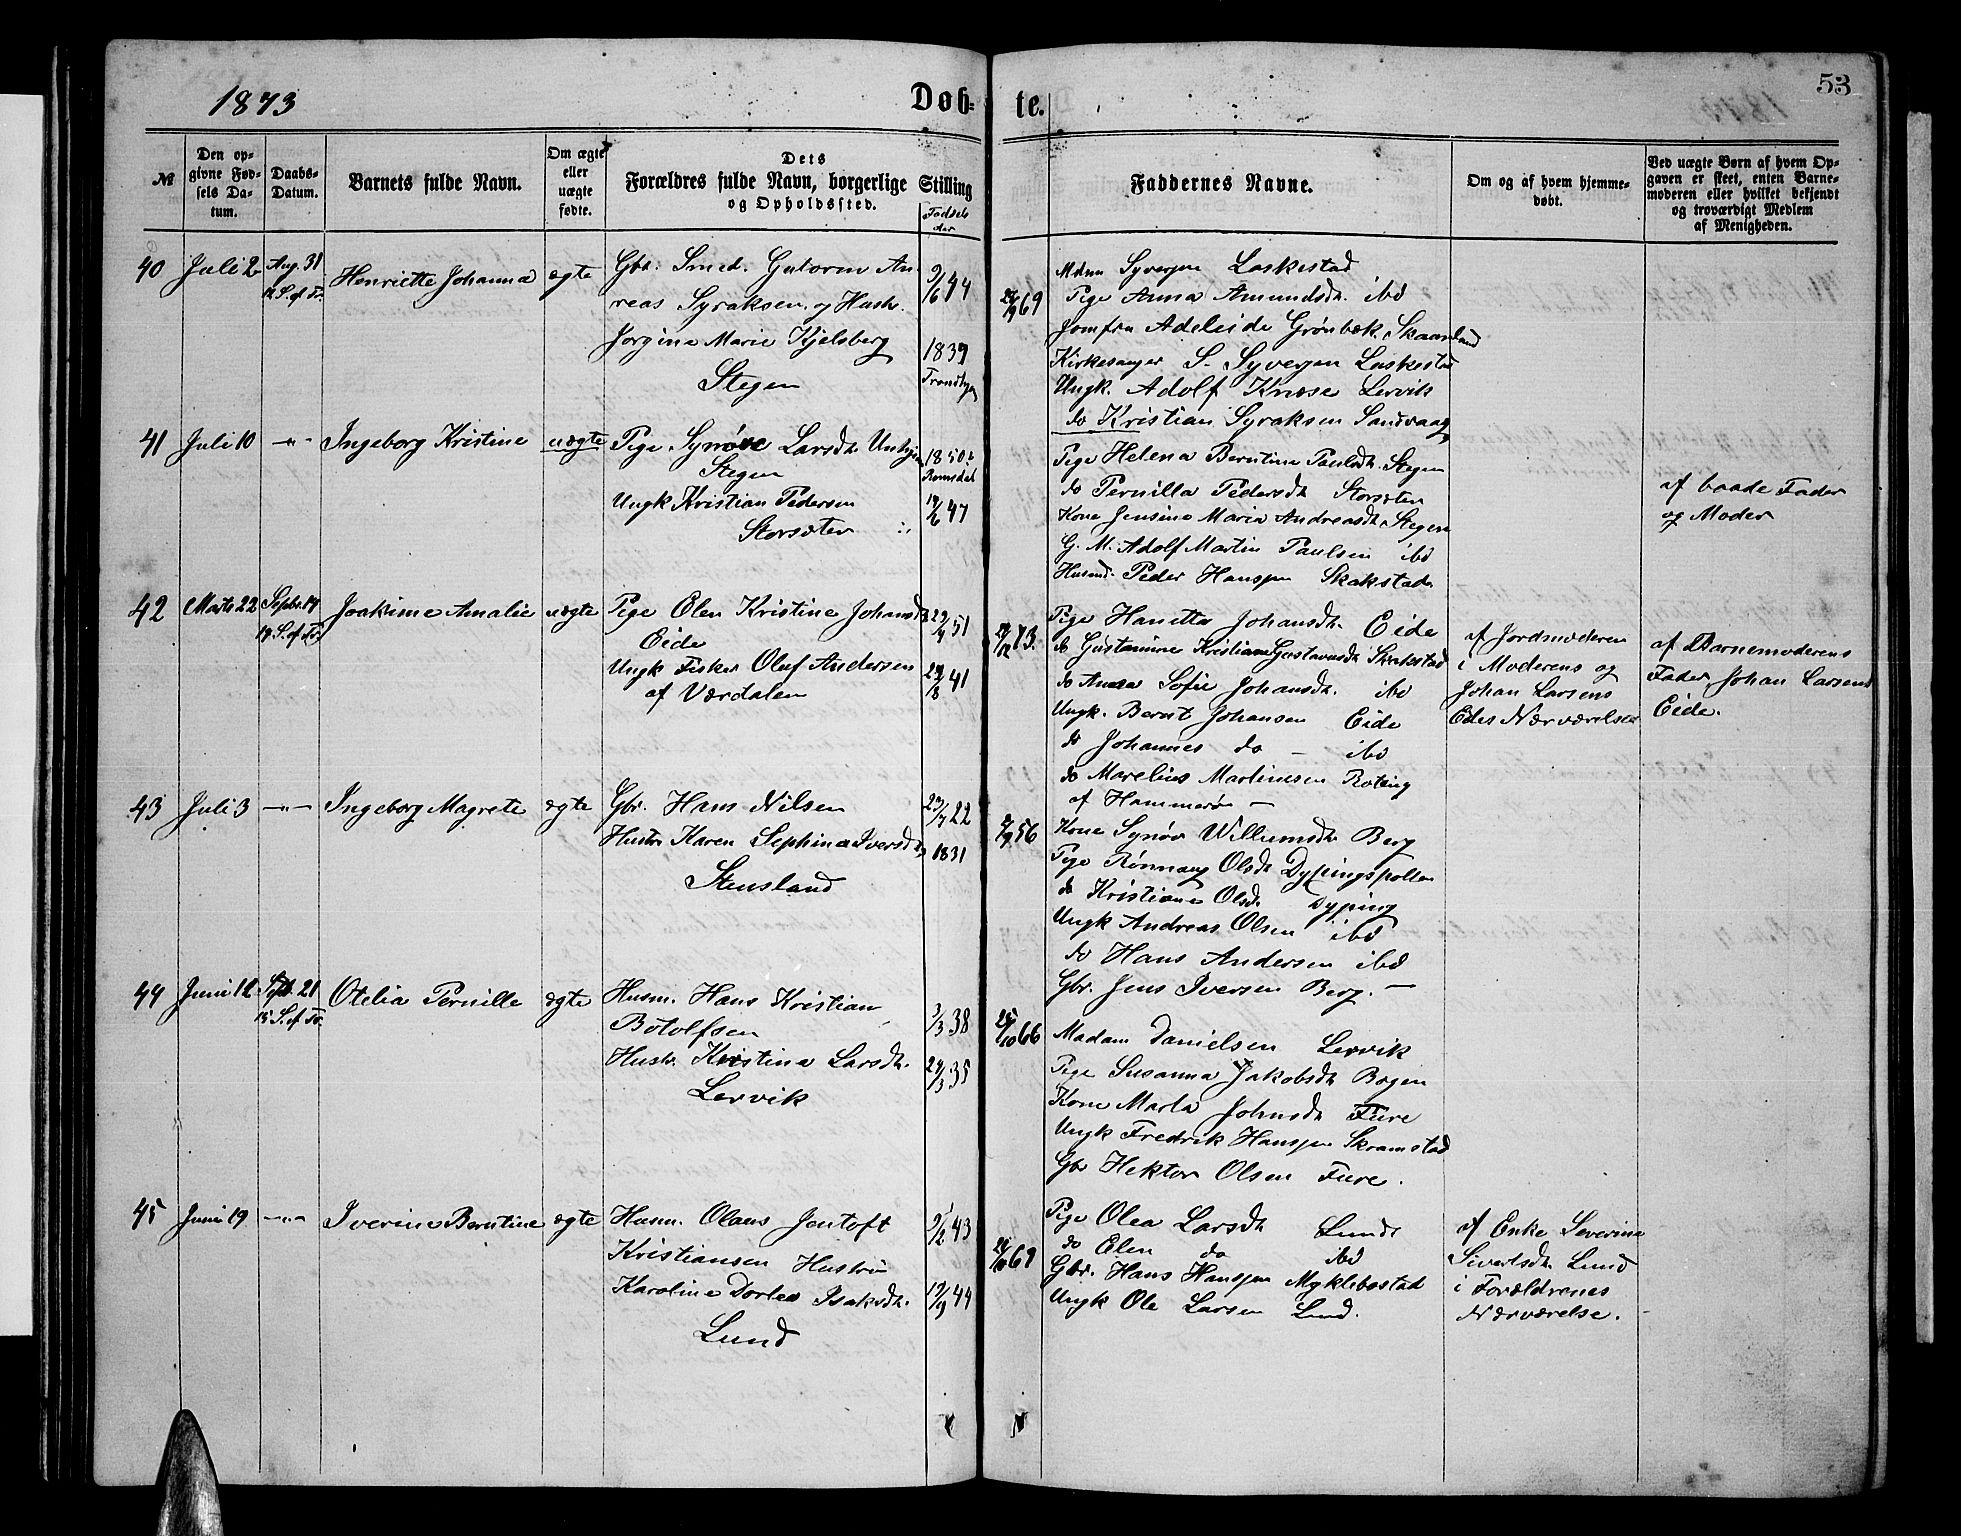 1873
Døb-
te.
53
№
Den op-
givne Fød-
sels Da-
tum.
Daabs-
Datum.
Barnets fulde Navn.
Om ægte
eller
uægte
fødte.
Dets
Forældres fulde Navn, borgerlige Stilling
og Opholdssted.
Fødsels
aar
Faddernes Navne.
Om og af hvem hjemme-
døbt.
Ved uægte Børn af hvem Op-
gaven er skeet, enten Barne-
moderen eller hvilket bekjendt
og troværdigt Medlem
af Menigheden.
40
Juli 2
Aug. 31
12 S. ef Tr.
Henriette Johanna
ægte
Gbr. Smed. Gutorm An-
reas Syraksen og Hustr.
Jorgine Marie Kjelsberg
Stegen
9/6 44
1839
Trondhjem
69
Mdm Syversen Laskestad
Pige Anna Amundsdtr. ibd
Jomfru Adeleide Grönbæk Skaanland
Kirkesanger S. Syversen Laskestad
Ungk. Adolf Knæse Lervik
do Kristian Syraksen Sandvaag
41
Juli 10
-"-
Ingeborg Kristine
uægte
Pige Synöve Larsdtr
Stegen
Ungk Kristian Pedersen
Storsæter
1850
Romsdal
47
Pige Helena Berntine Paulsdtr. Stegen
do Pernilla Pedersdtr Storsæter
Kone Jensine Maria Andreasdtr Stegen
G. M. Adolf Martin Paulsen ibd
Husmd. Peder Hanssen Skakstad
af baade Fader
og Moder
42
Marts 22
Septbr. 14
14 S. ef Tr.
Joakime Amalie
uægte
Pige Elen Kristine Johansdtr
Eide
Ungk Fisker Oluf Andersen
af Værdalen
51
41
73.
Pige Hanetta Johansdtr. Eide
do Gustamine Kristiane Gustavusdtr Skakstad
do Anna Sofie Johansdtr. ibd
Ungk. Bernt Johansen Eide
do Johannes do - ibd
do Marelius Martinesen Roteng
af Hammerø -
af Jordmoderen
i Moderens og
Johan Larsens
Edes Nærværelse
af Barnemoderens
Fader, Johan Larsens
Eide.
43
Juli 3
-"-
Ingeborg Magrete
ægte
Gbr. Hans Nilsen
Hustr Karen Sephina Iversdtr
Stensland
22
1831
56
Kone Synøv Willumsdtr Berg
Pige Rönnaug Olsdtr Dypingspollen
do Kristiane Olsdtr Dyping
Ungk Andreas Olsen ibd
do Hans Andersen ibd
Gbr. Jens Iversen Berg. -
44
Juni 12
Sept. 21
15 S. ef Tr.
Otelia Pernille
ægte
Husm. Hans Kristian
Botolfsen
Hustr. Kristina Larsdtr.
Lervik
3/3 38
24/3 35
66
Madam Danielsen Lervik
Pige Susanna Jakobsdtr Bogen
Kone Marta Johnsdtr Fure
Ungk Fredrik Hanssen Skramstad
Gbr Hektor Olsen Fure.
45
Juni 19
-"-
Iverine Berntine
ægte
Husm. Olaus Jentoft
Kristiansen Hustru
Karoline Dortea Isaksdtr.
Lund
43
19/9 44
69
Pige Olea Larsdtr Lund
do Elen do ibd
Gbr. Hans Hanssen Myklebostad
Ungk Ole Larsen Lund.
af Enke Severine
Sivertsdtr Lund
i Forældrenes
Nærværelse.